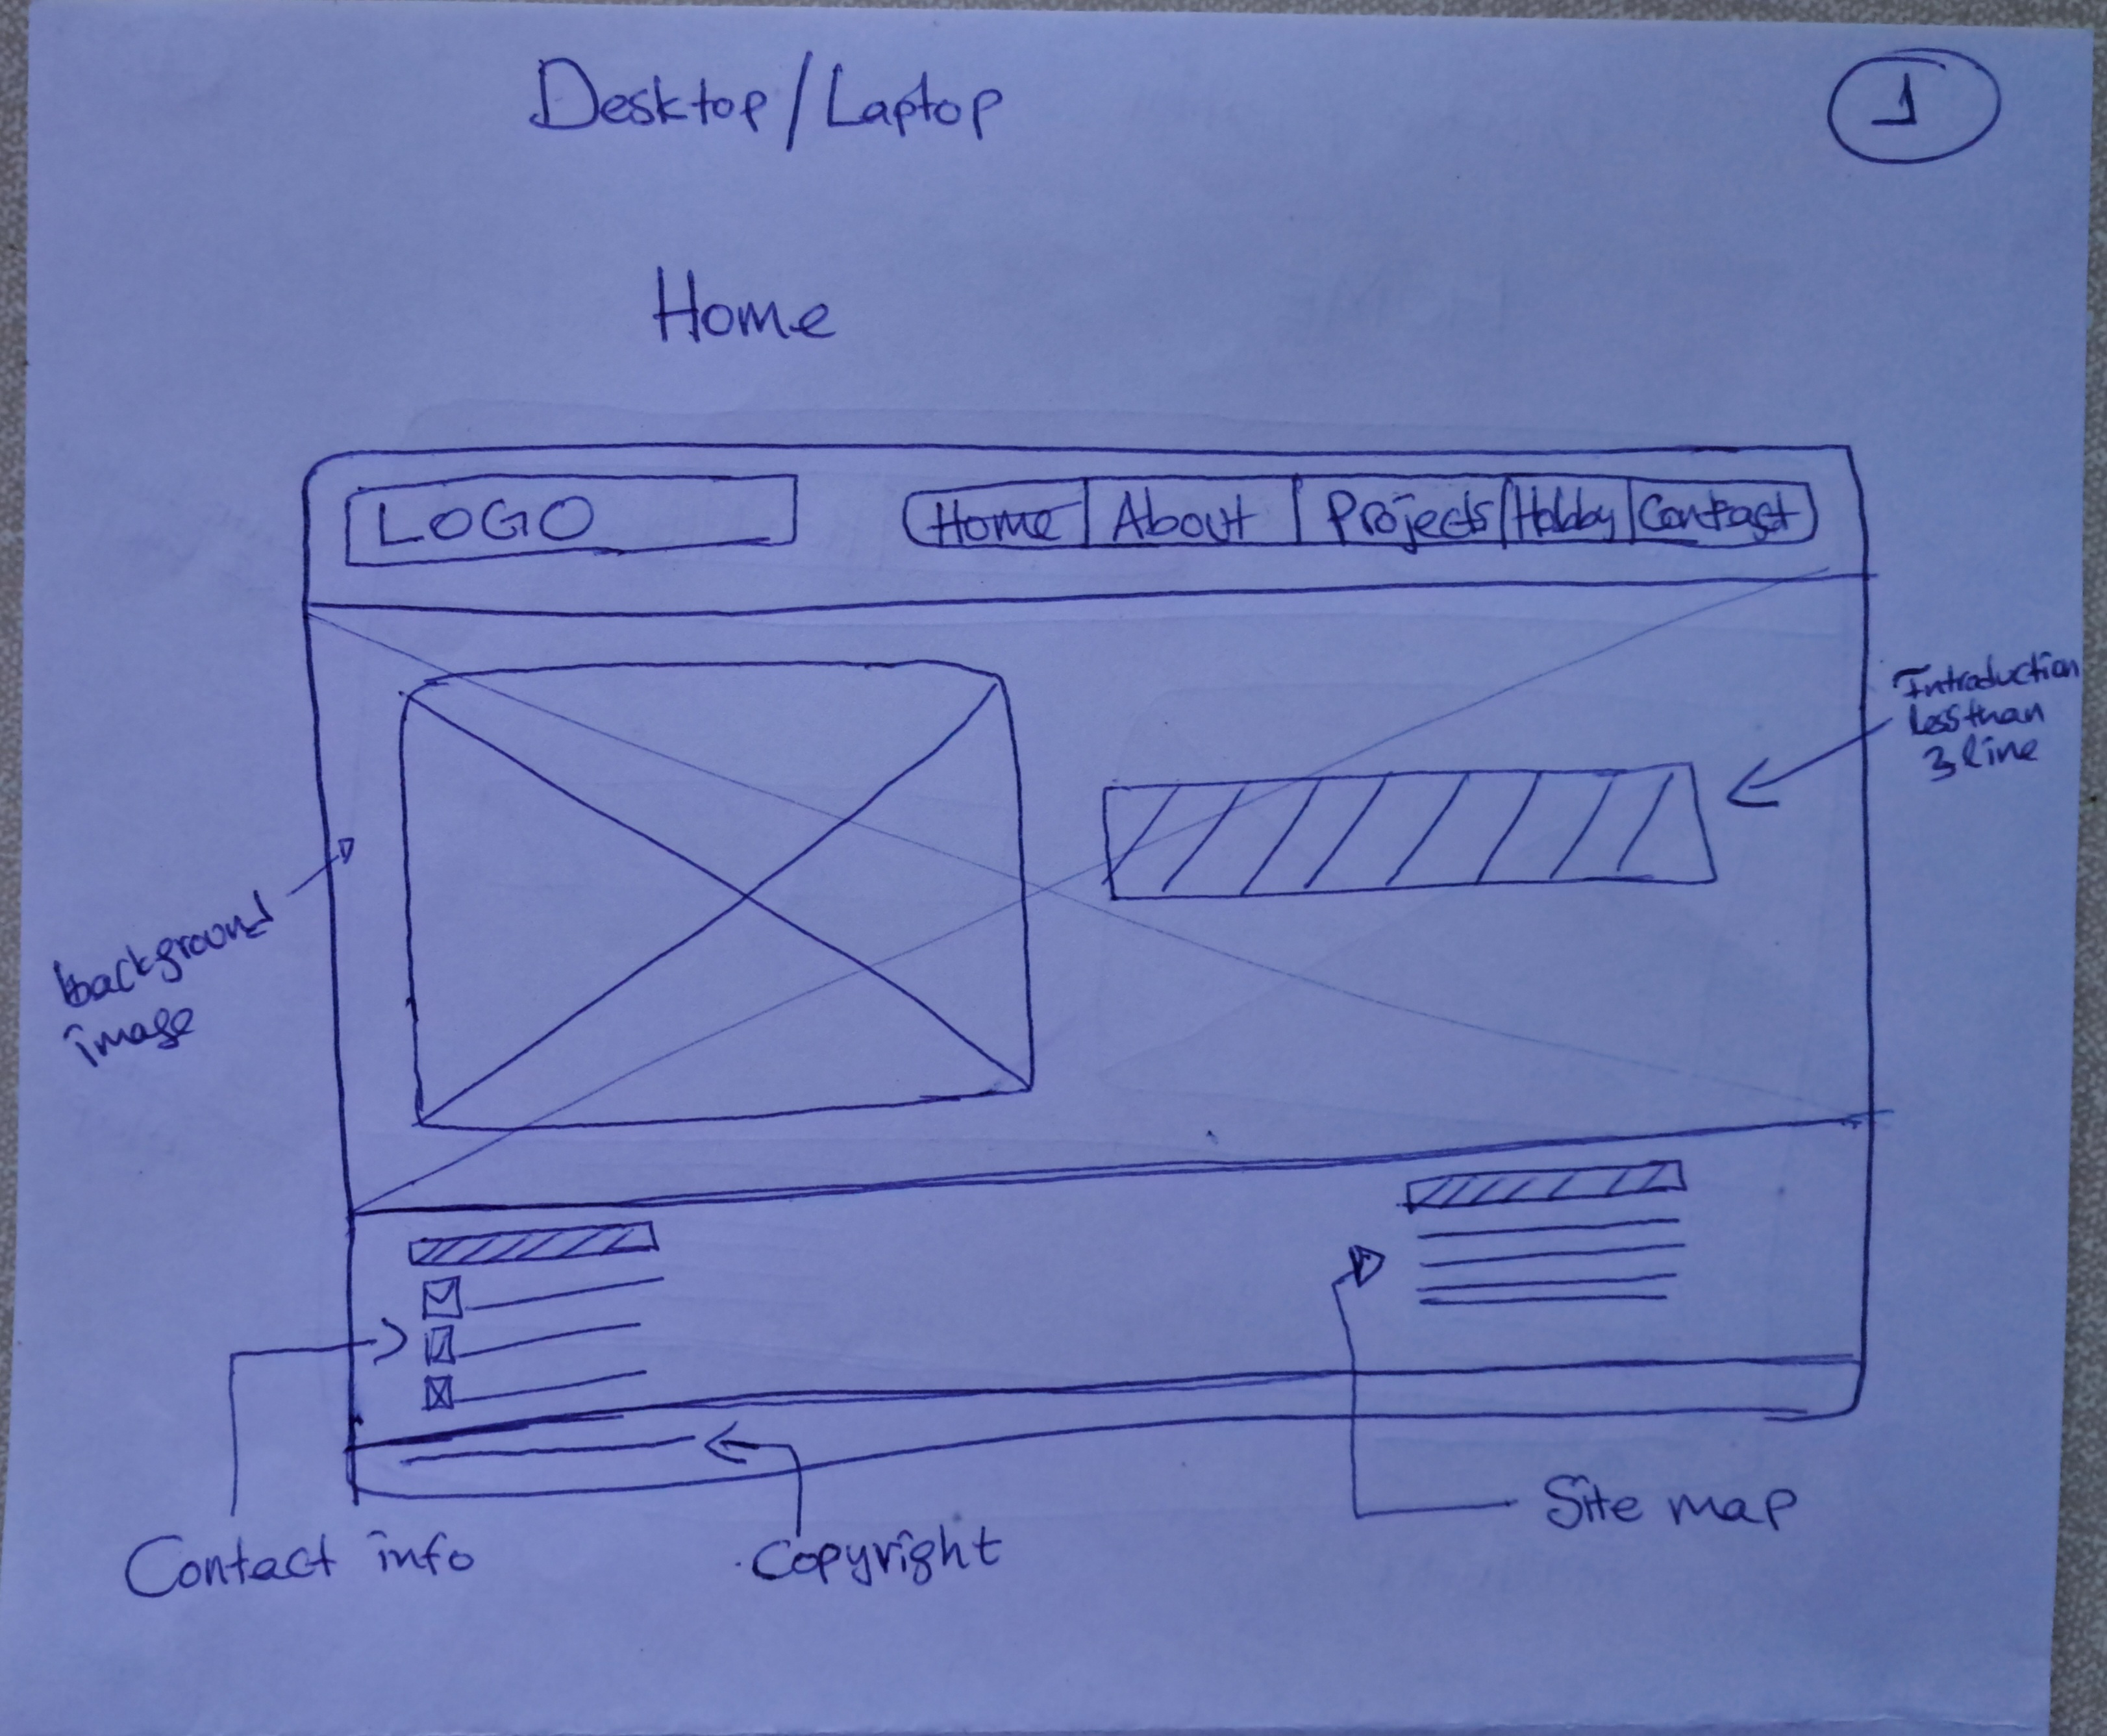 Desktop/Laptop
1
Home
LOGO
Home About Projects Hobby Contact
Introduction
Less than
3 line
background
image
Contact info
Copyright
Site map